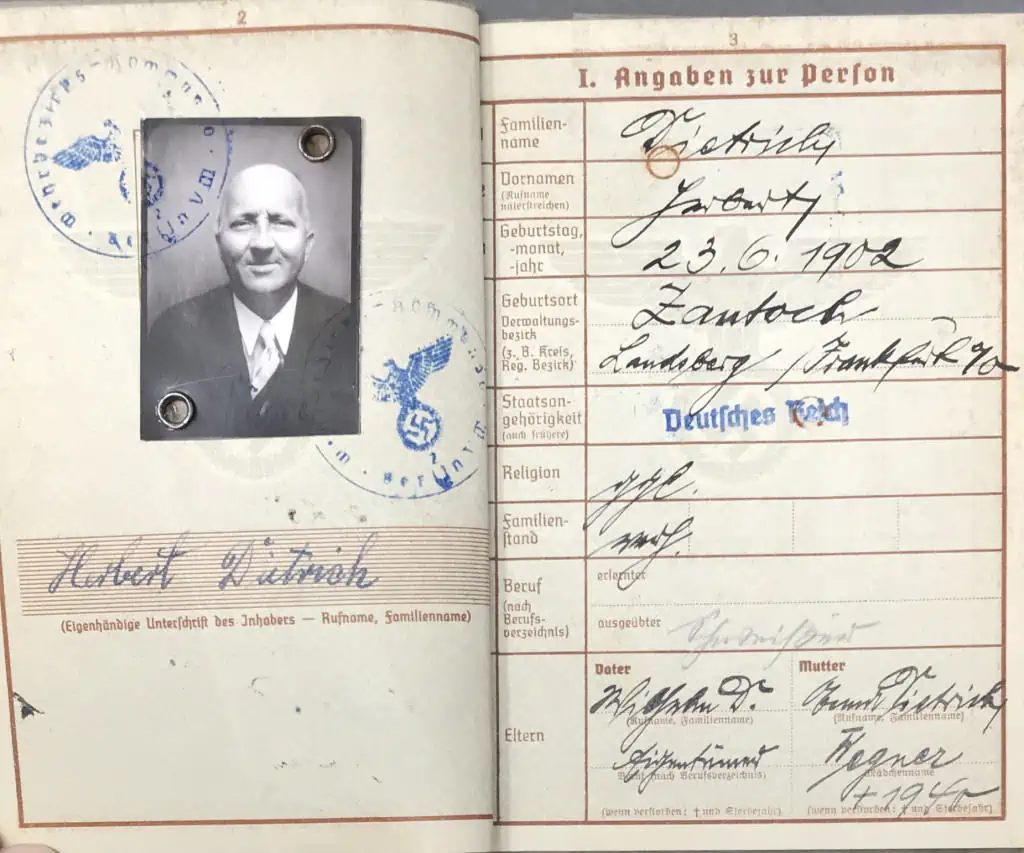 2
Herbert Dietrich
(Eigenhändige Unterschrift des Inhabers — Rufname, Familienname)
3
I. Angaben zur Person
Familien-
name
Dietrich
Vornamen
(Rufname
unterstreichen)
Herbert
Geburtstag,
-monat,
-jahr
23.6.1902
Geburtsort
Verwaltungs-
bezirk
(z. B. Kreis,
Reg. Bezirk)
Zantoch
Landsberg / Frankfurt %o
Staatsan-
gehörigkeit
(auch frühere)
Deutsches Reich
Religion
ggl.
Familien-
stand
verh.
Beruf
(nach
Berufs-
verzeichnis)
erlernter
ausgeübter
Eltern
Vater
Wilhelm D.
(Rufname, Familienname)
Eigentümer
Beruf (nach Berufsverzeichnis)
(wenn verstorben: † und Sterbejahr)
Mutter
Dietrich
(Rufname, Familienname)
Wegner
Mädchenname
† 1940
(wenn verstorben: † und Sterbejahr)